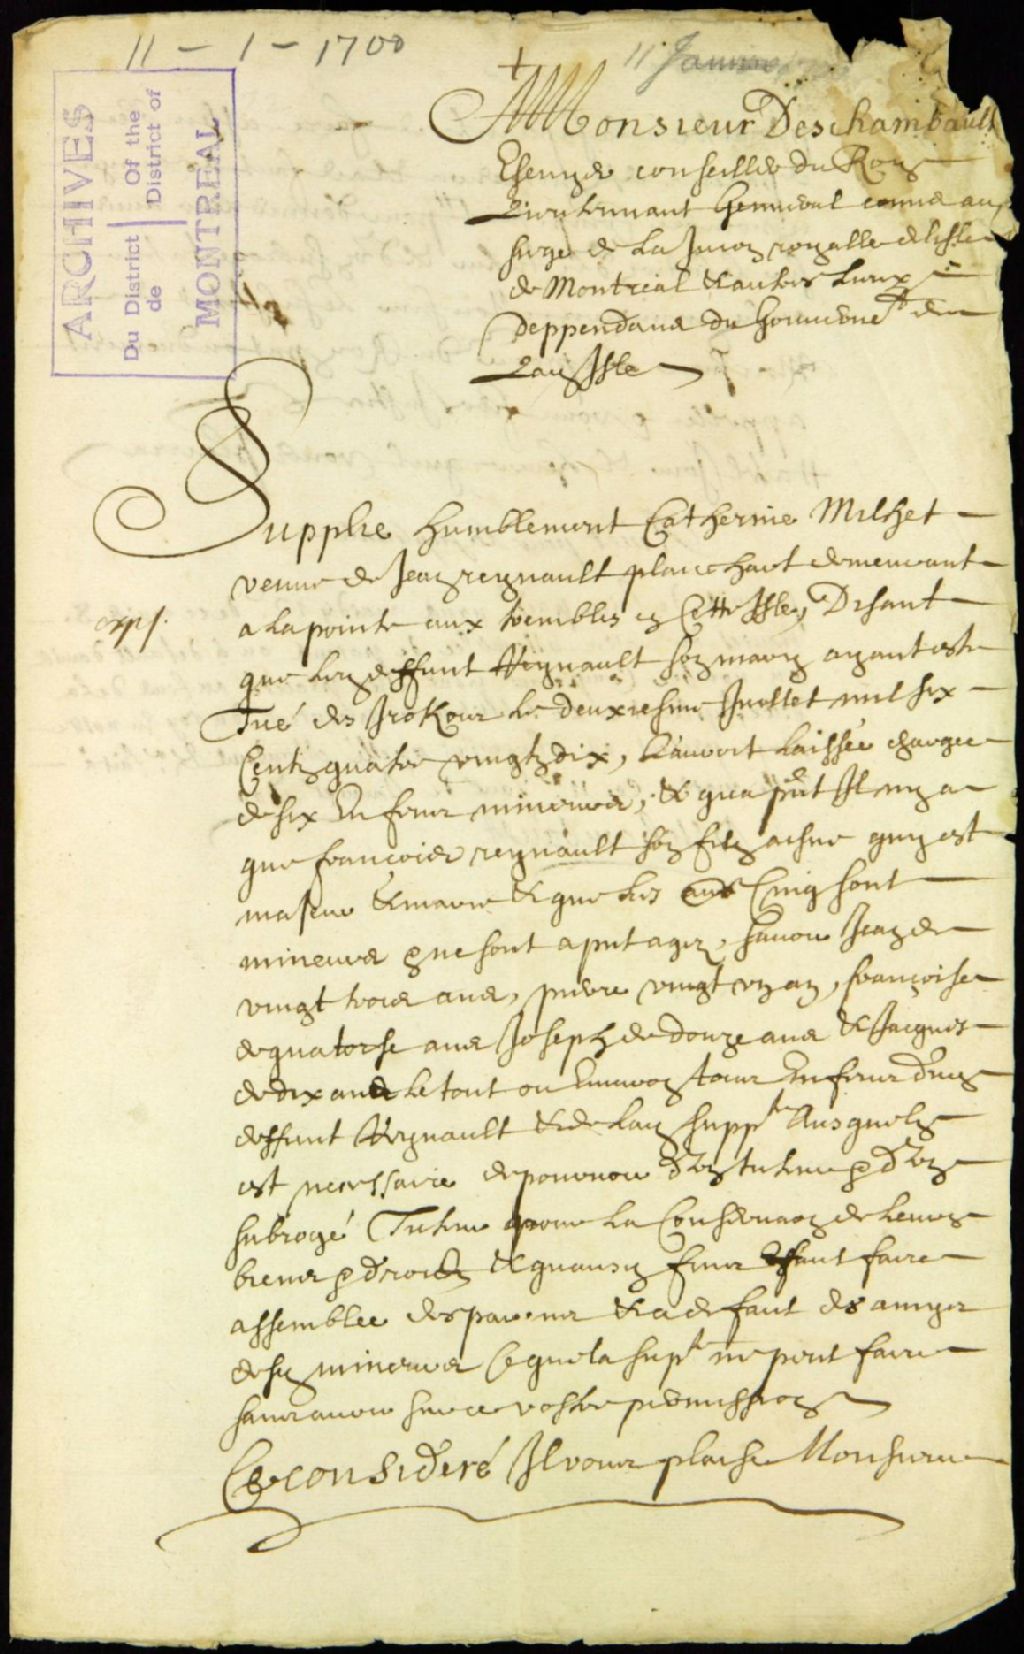 11 - 1 - 1700
11 Janvier
ARCHIVES
Du District | Of the
de | District of
MONTREAL
A Monsieur Deschambault
Escuyer conseiller du Roy
Lieutenant General comme au
siege de La Juron royalle de lisle
de Montreal & autres Lieux
deppendans du Gouvernet de
Lad Isle
Supplie humblement Catherine Milhet
veuve de Jean reynault planchart demeurant
exp.
a La pointe aux trembles en Cette Isle, Disant
que led deffunt Reynault son mary ayant este
Tué des Irokois le deuxiesme Juillet mil six
Cents quatre vingts dix, L'auroit Laissée chargée
de six Enfans mineurs, & qu'a pnt Il ny a
que francois reynault son filz aisne quy est
majeur & marie & que les aues Cinq sont
mineurs & ne sont a pnt agez, scavoir Jean de
vingt trois ans, pierre vingt un an, françoise
de quatorse ans Joseph de Douze ans & Jacques
de dix ans le tout ou Environ tous Enfans dud
deffunt Reynault & de Lad suppte Ausquels
est necessaire de pourvoir d'un tuteur & d'un
subrogé Tuteur pour La Conservaon de Leurs
biens & droits & qu'aussy fins Il faut faire
assemblee des parens & a defaut des amys
desd mineurs Ce que la supte ne peut faire
sans avoir sur ce vostre permission
Ce consideré Il vous plaise Monsieur